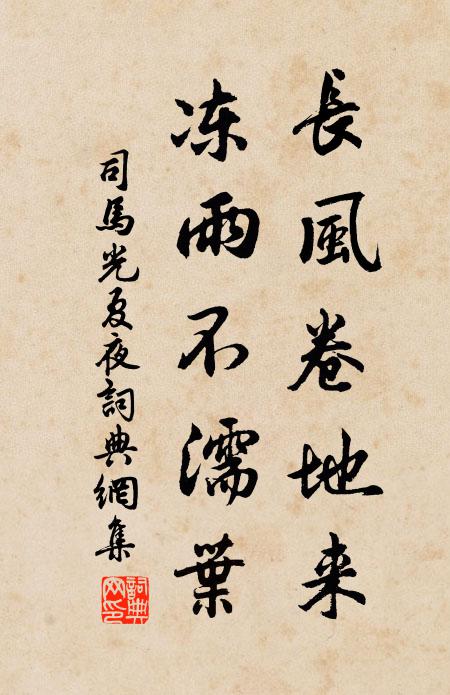 長風卷地来
冻雨不濡葉
司馬光夏夜詞典網集
詞典網印